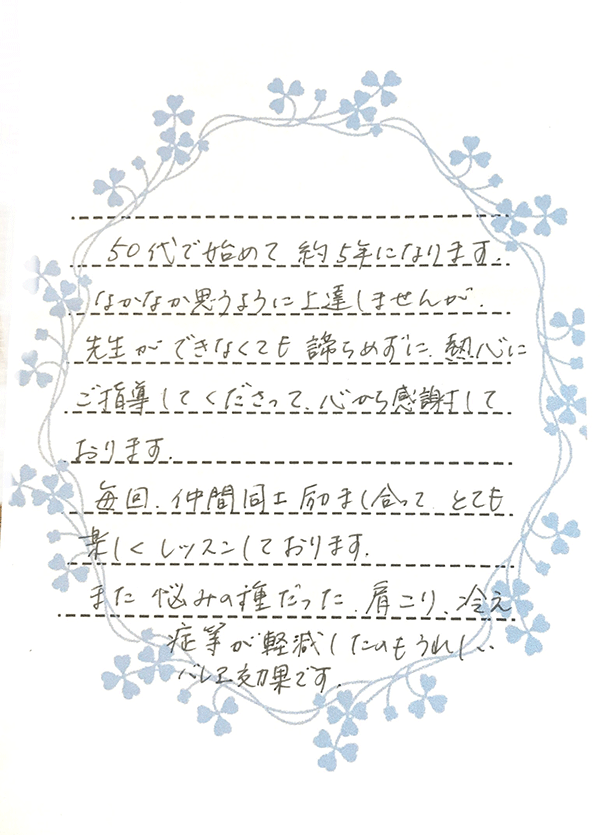 50代で始めて 約5年になります.
なかなか思うように上達しませんが.
先生が できなくても 諦らめずに、熱心に
ご指導してくださって、心から感謝して
おります.
毎回、仲間同士 励まし合って とても
楽しく レッスンしております.
また 悩みの種だった、肩こり、冷え
症等が軽減したのもうれしい
バレエ効果です.